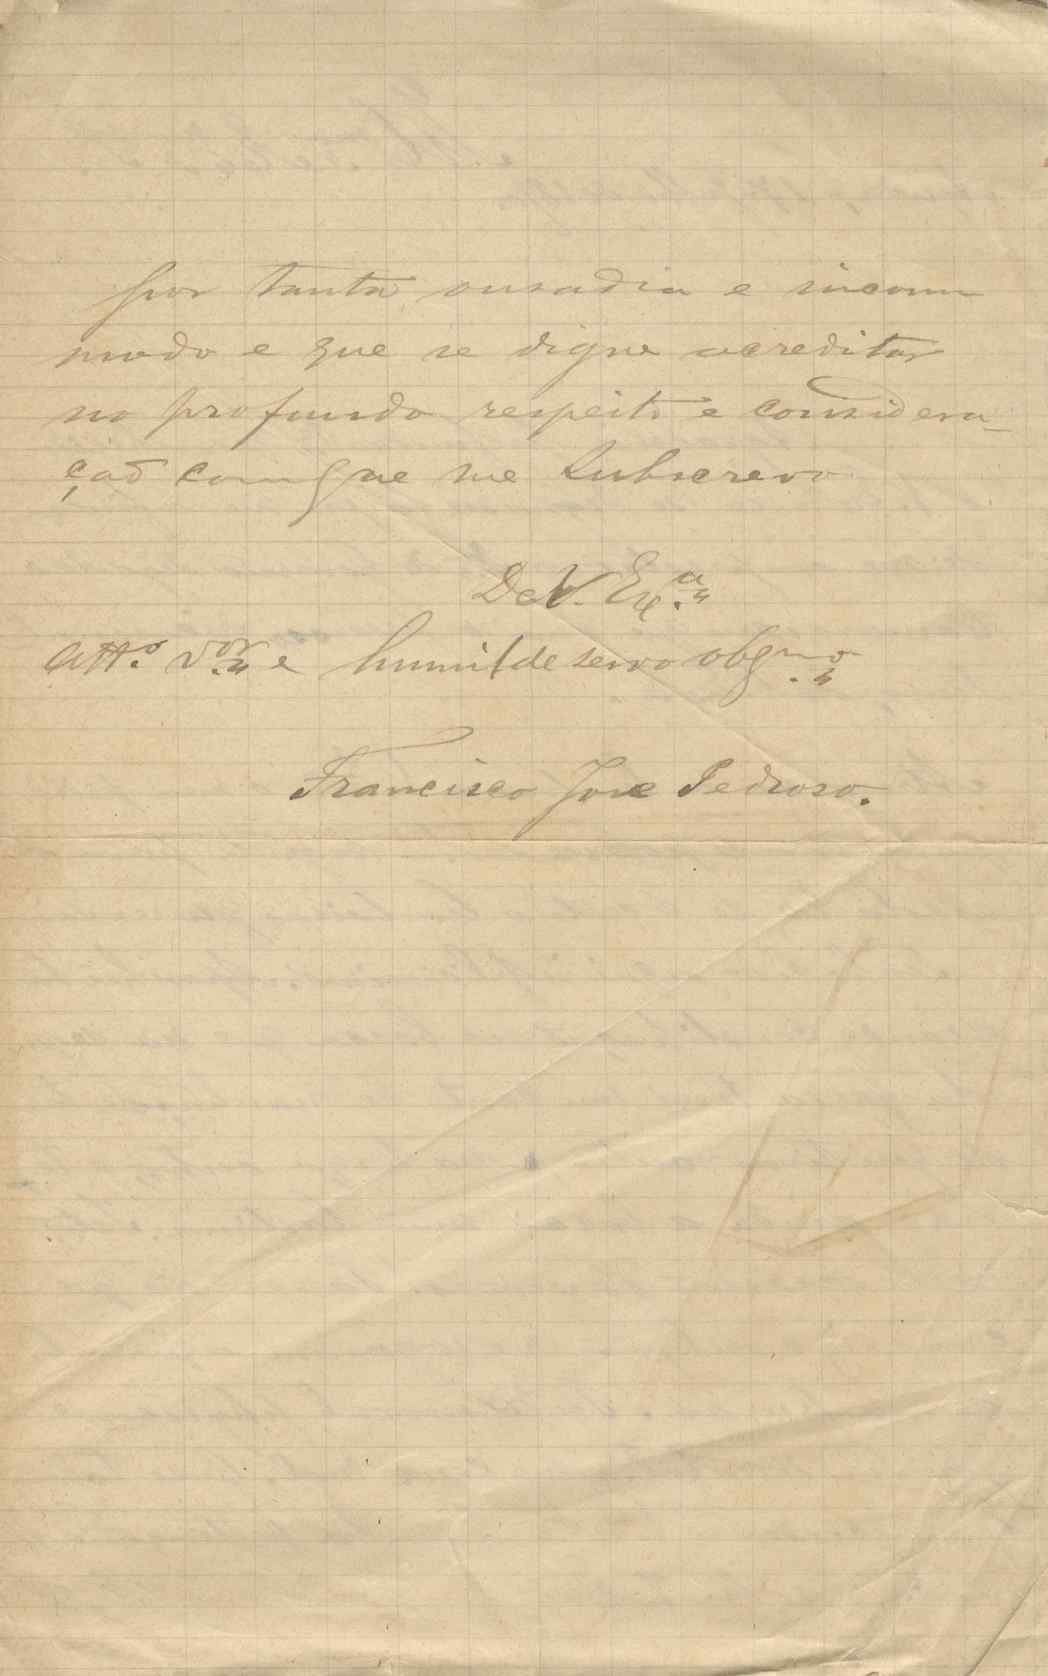 por tanta ousadia e incom
modo e que se digne acreditar
no profundo respeito e considera-
ção com que me subscrevo
De V. Exª
Attº vor e humilde servo obgmo
Francisco José Pedroso.